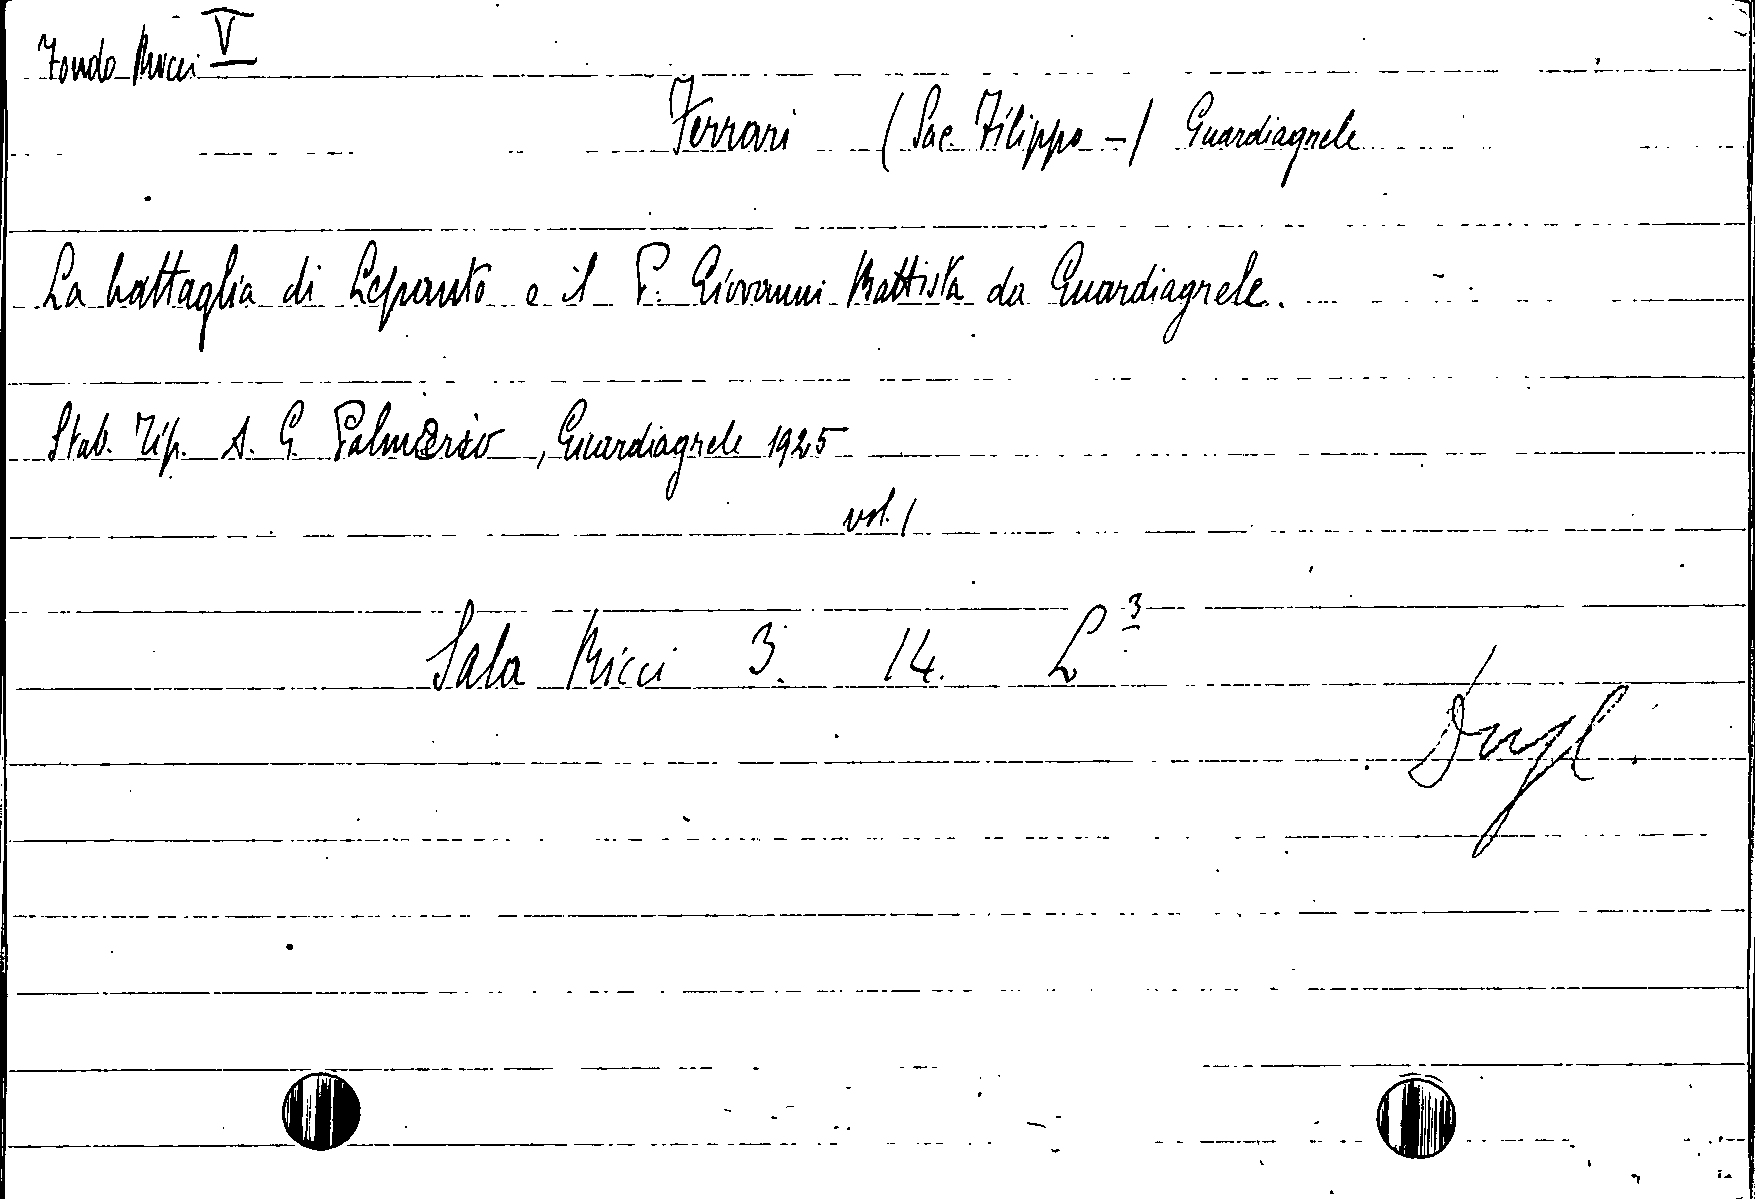 Fondo Ricci V
Ferrari (Sac. Filippo -) Guardiagrele
La battaglia di Lepanto e il P. Giovanni Battista da Guardiagrele.
Stab. Tip. A. G. Palmerio, Guardiagrele 1925
vol. 1
Sala Ricci 3. 14. L 3
Dupl.